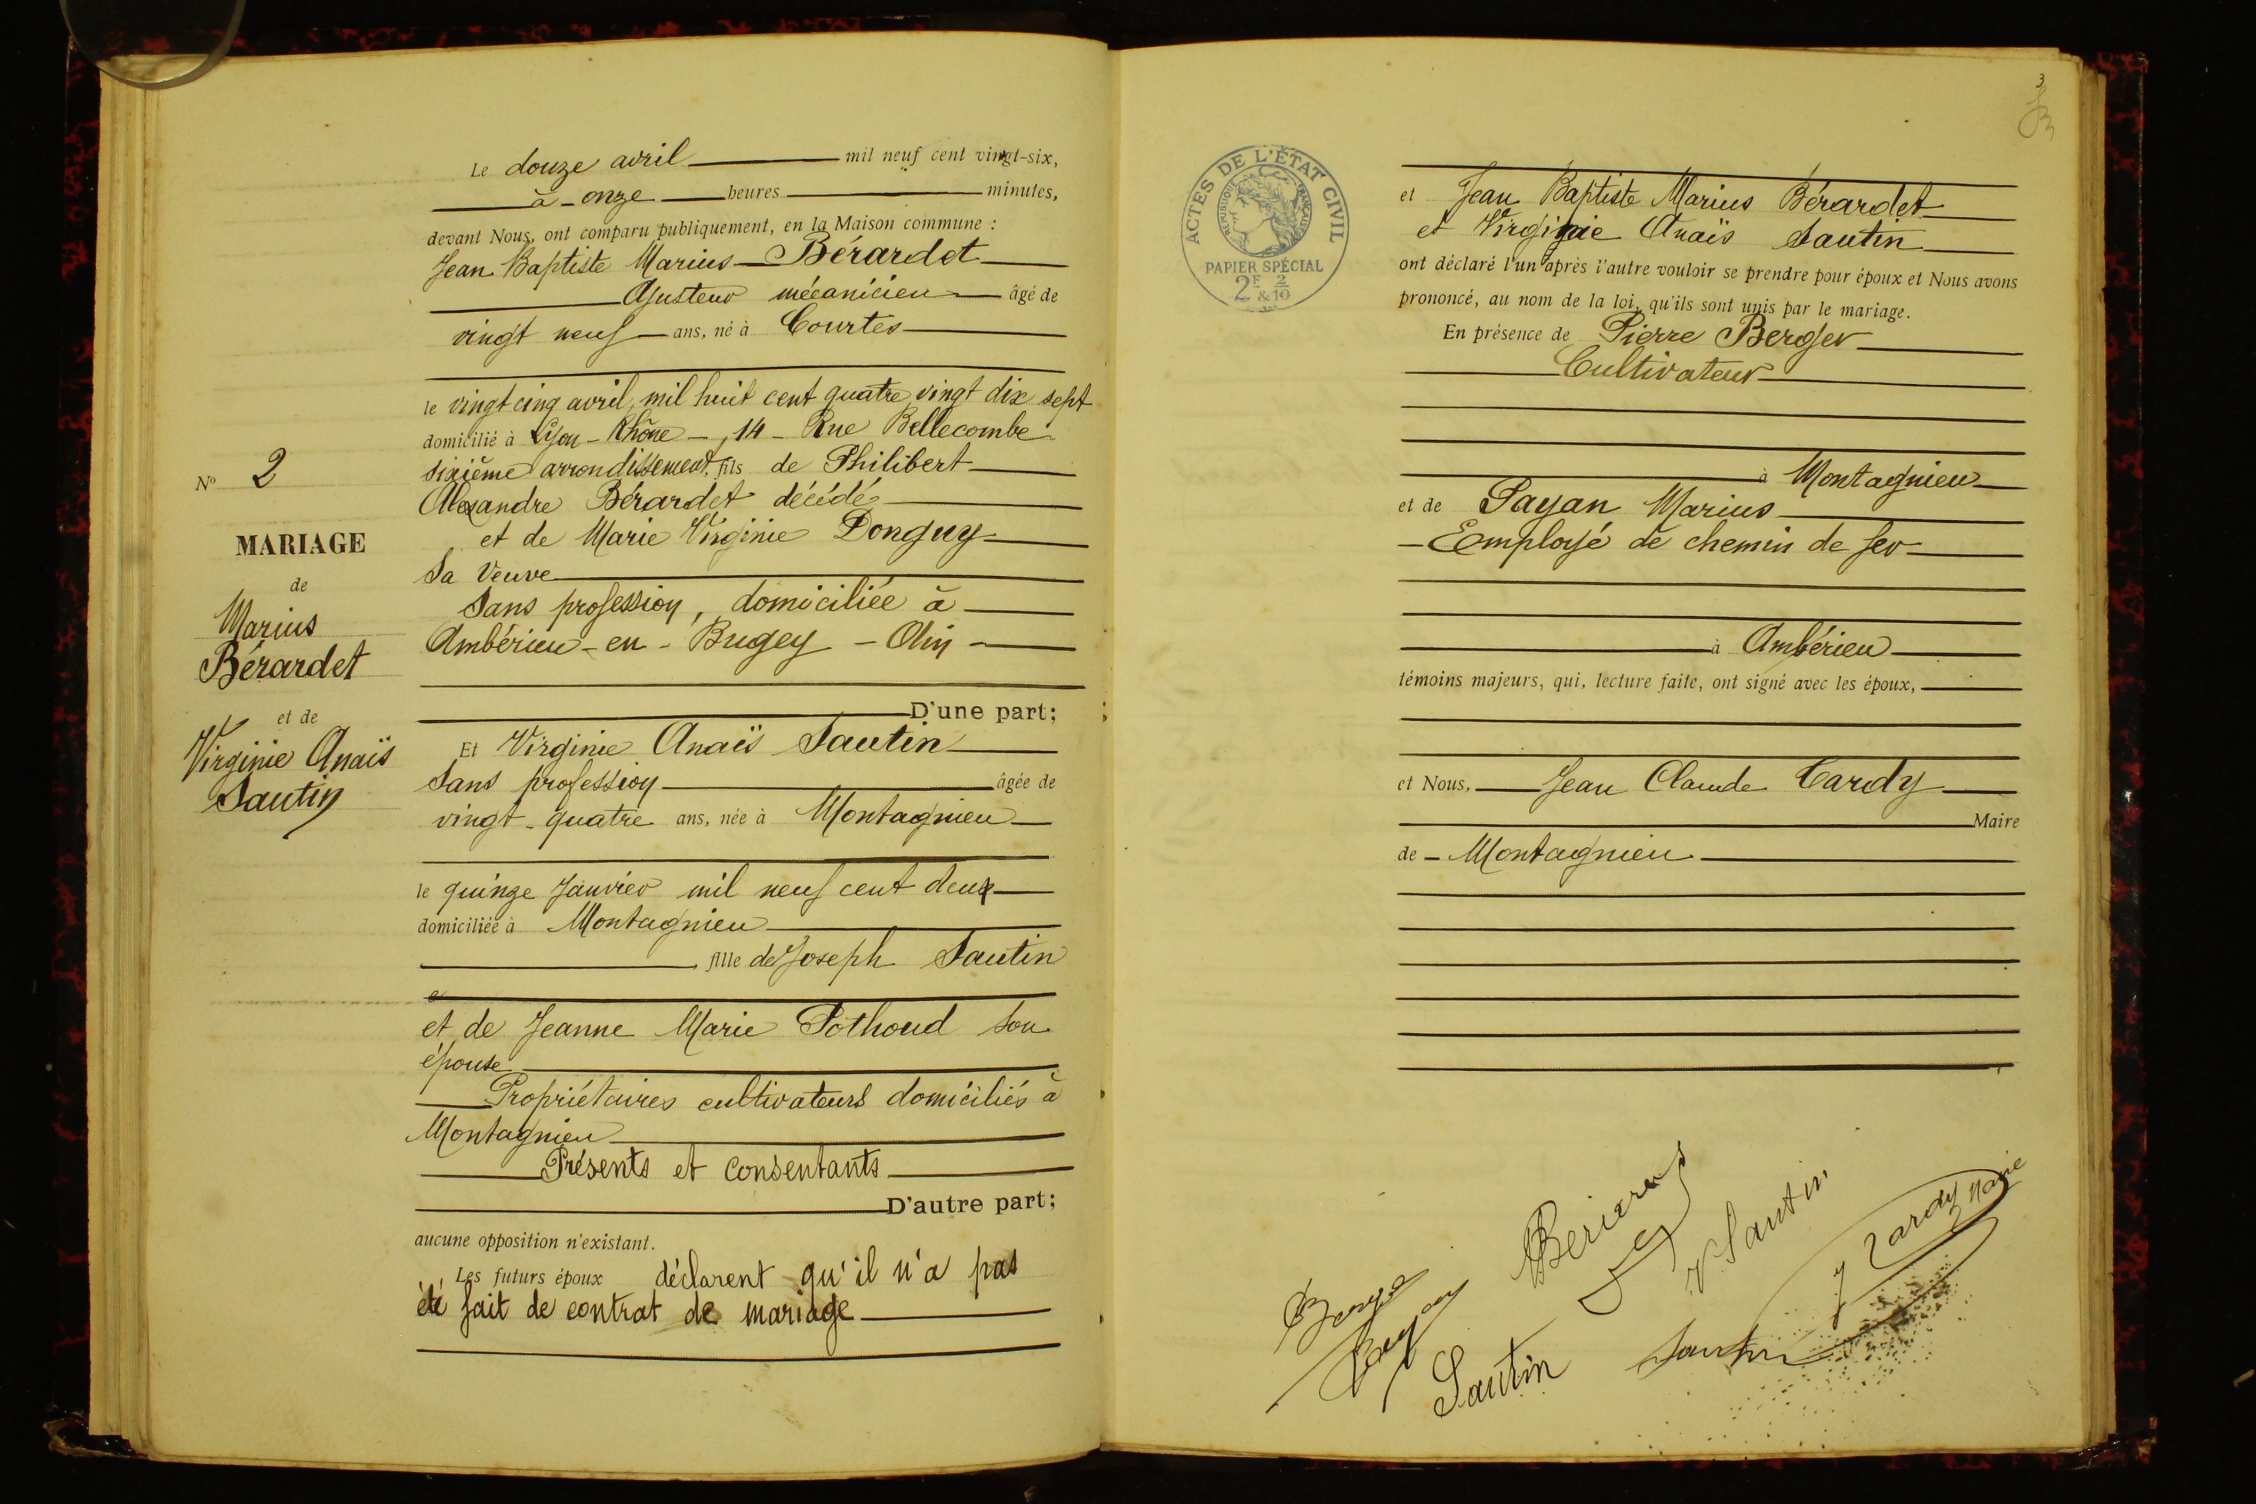 Le douze avril mil neuf cent vingt-six,
à onze heures minutes,
devant Nous, ont comparu publiquement, en la Maison commune :
Jean Baptiste Marius Bérardet
Ajusteur mécanicien âgé de
vingt neuf ans, né à Courtes
le vingt cinq avril, mil huit cent quatre vingt dix sept
domicilié à Lyon - Rhône -, 14 - Rue Bellecombe
sixième arrondissement. fils de Philibert
Alexandre Bérardet décédé
et de Marie Virginie Donguy
Sa Veuve
Sans profession, domiciliée à
Ambérieu - en - Bugey - Ain -
D'une part;
Nº 2
MARIAGE
de
Marius
Bérardet
et de
Virginie Anaïs
Sautin
Et Virginie Anaïs Sautin
Sans profession âgée de
vingt - quatre ans, née à Montagnieu
le quinze Janvier mil neuf cent deux
domiciliée à Montagnieu
fille de Joseph Sautin
et de Jeanne Marie Pothoud son
épouse
Propriétaires cultivateurs domiciliés à
Montagnieu
Présents et consentants
D'autre part;
aucune opposition n'existant.
Les futurs époux déclarent qu'il n'a pas
été fait de contrat de mariage
3
ACTES DE L'ÉTAT CIVIL
RÉPUBLIQUE FRANÇAISE
PAPIER SPÉCIAL
2F & 2/10
et Jean Baptiste Marius Bérardet
et Virginie Anaïs Sautin
ont déclaré l'un après l'autre vouloir se prendre pour époux et Nous avons
prononcé, au nom de la loi, qu'ils sont unis par le mariage.
En présence de Pierre Berger
Cultivateur
à Montagnieu
et de Payan Marius
- Employé de chemin de fer
à Ambérieu
témoins majeurs, qui, lecture faite, ont signé avec les époux,
et Nous, Jean Claude Cardy
Maire
de - Montagnieu
V Sautin
J Cardy Maire
Berger
Payan
Sautin
Sautin